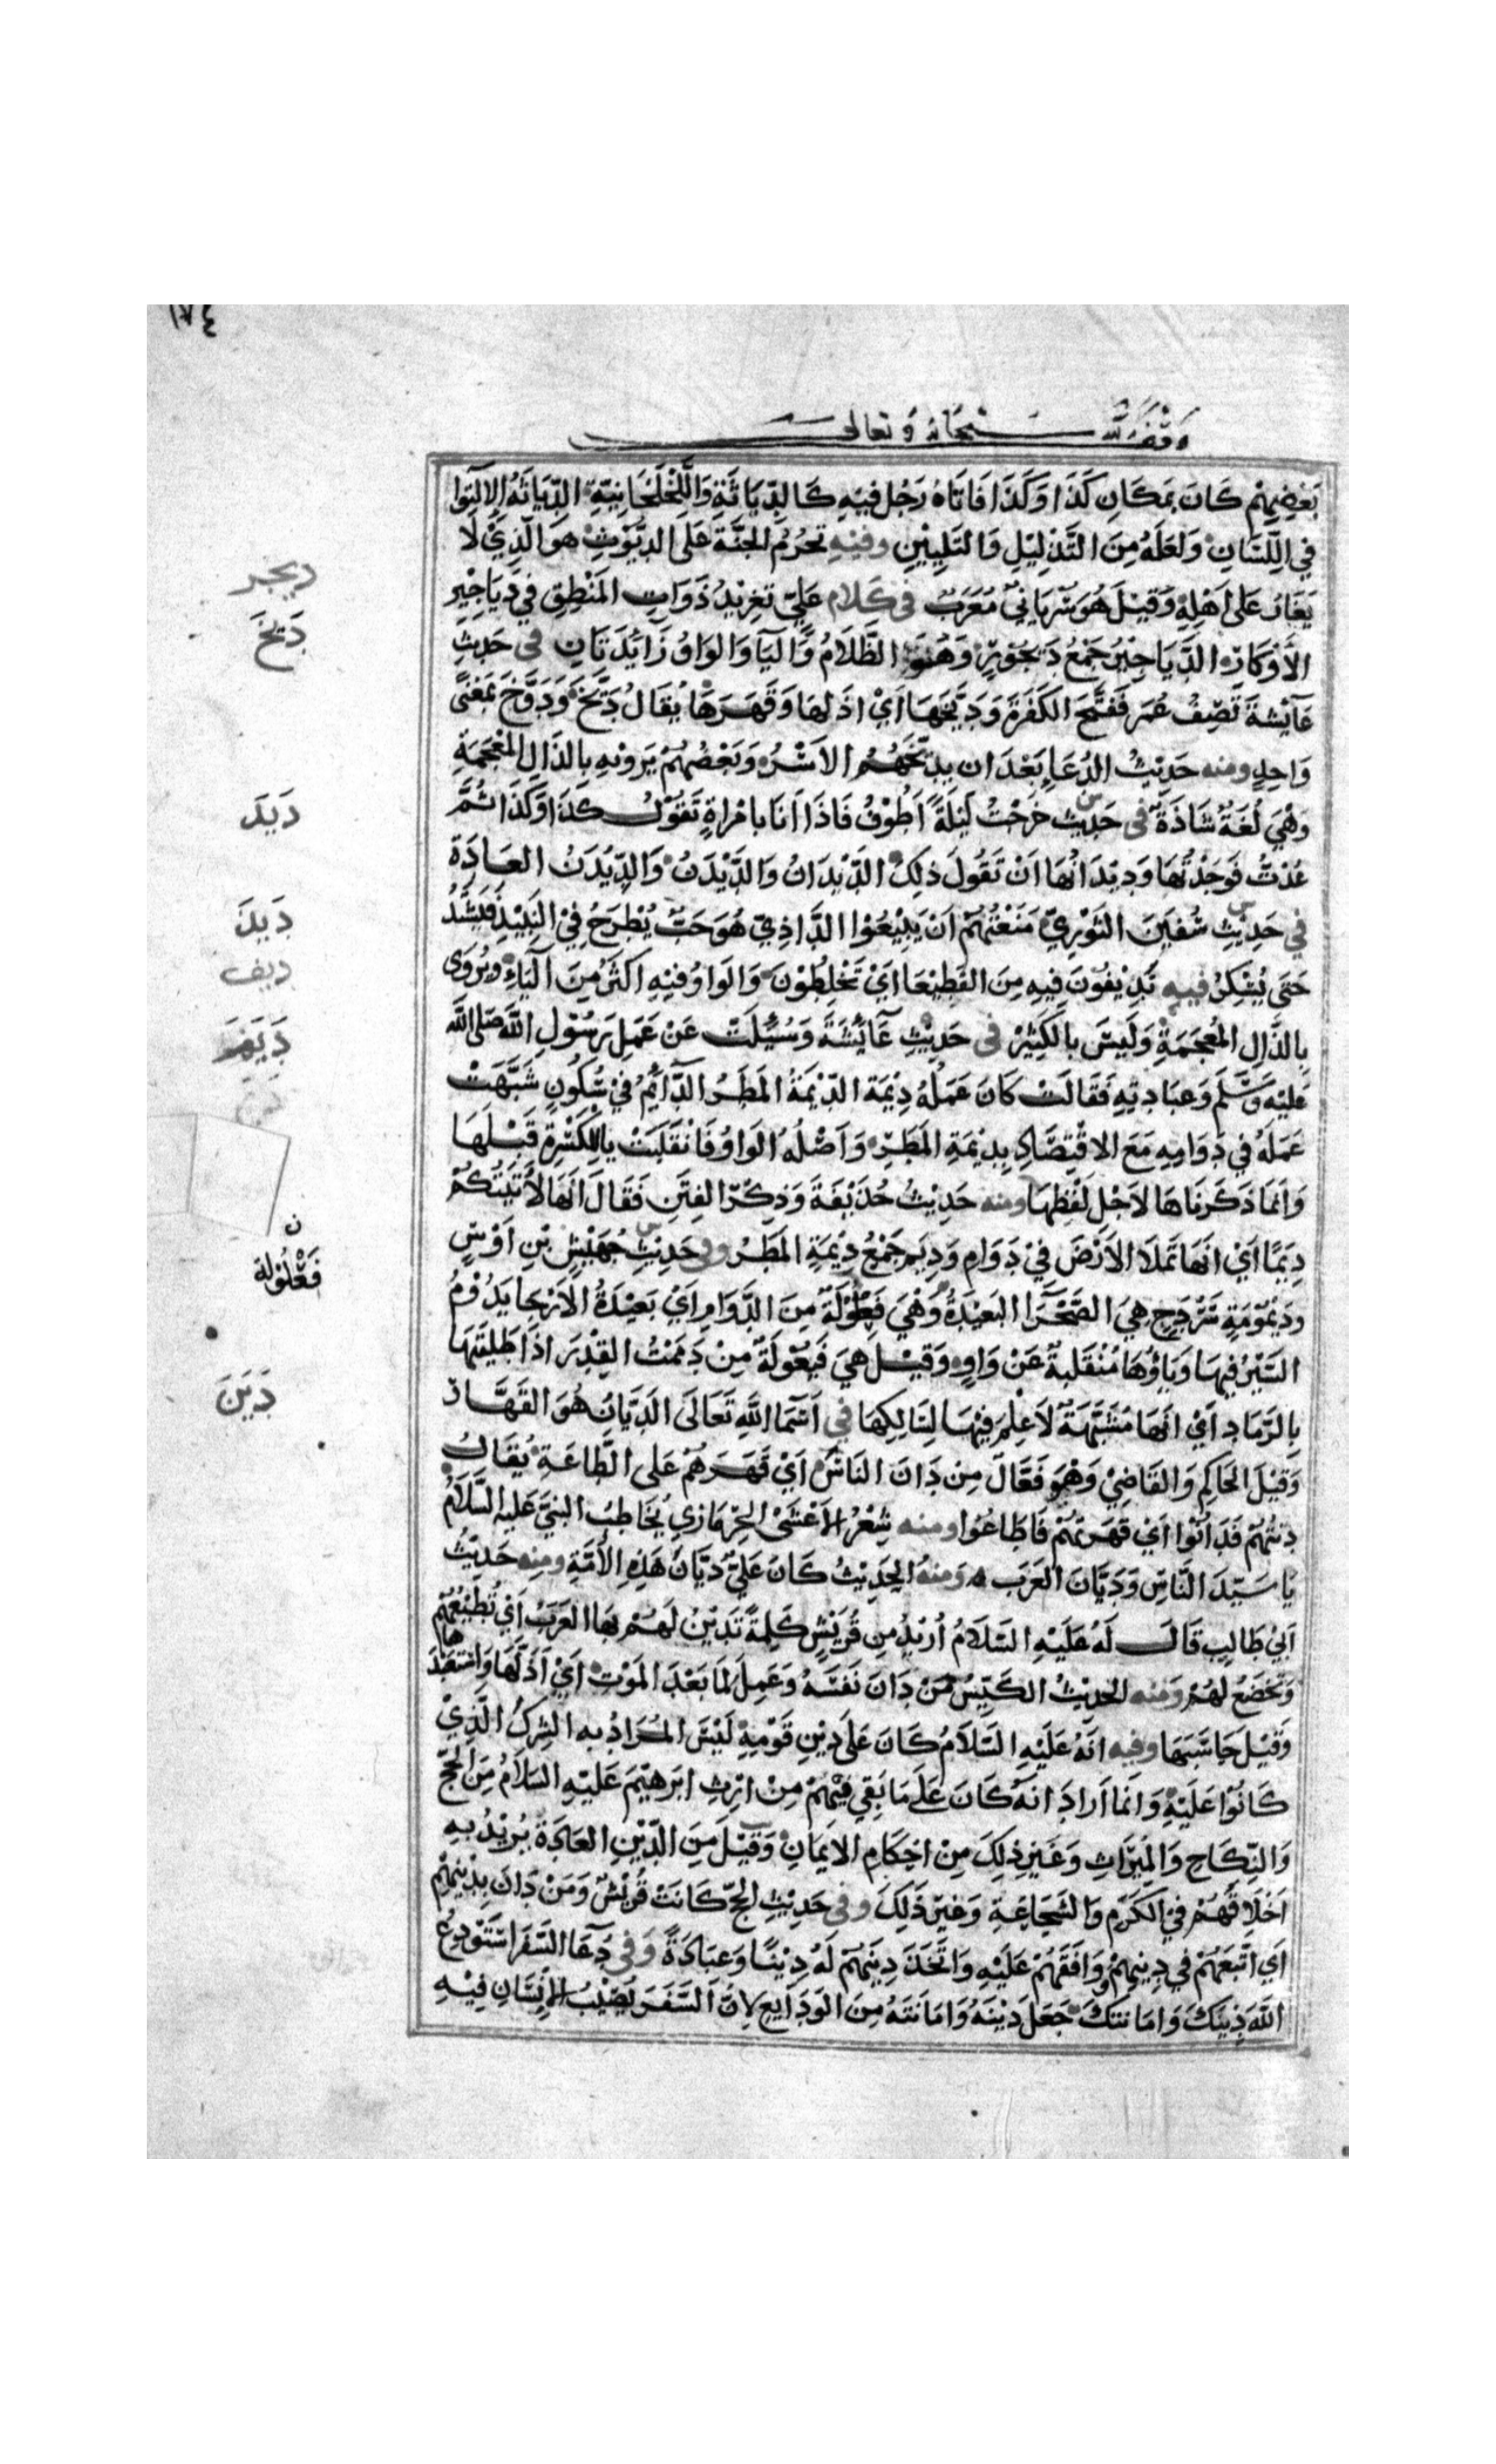 ١٧٤
وقف لله سبحانه وتعالى
بَعْضِهِمْ كَانَ بِمَكَانِ كَذَا وَكَذَا فَاتَاهُ رَجُل فيْهِ كَالدِّيَاثَةِ وَاللَّخْلَخَانِيَّةِ الدِّيَاثَةُ الالتِوا
في اللِّسَانِ وَلَعَلَهُ مِنَ التَّذلِيْلِ وَالتَليِيْنِ وفيْهِ تَحْرُمُ الجَنَّةَ عَلَى الدَيُّوْثِ هوَ الَّذِيْ لَا
يَغَارُ عَلى اَهْلِهِ وَقيْلَ هُوَ سُرْيَانِيٌ مُعَرَبٌ في كَلَام عَلِيّ تَغرِيْدُ ذَوَاتِ المَنْطِقِ في دَيَاجيْرِ
الأَوْكَارِ الدَّيَاجيْرُ جَمْعُ دَيجُوْرٍ وَهُوَ الظَّلَامُ وَاليَا وَالوَاوُ زَائدَتَانِ في حَديْثِ
عَايْشَةَ تَصِفُ عُمَر فَفَتَحَ الكَفَرَةَ وَدَيَّخَهَا اَيْ اذَلهَا وَقَهَرَهَا يُقَالُ دَيَّخَ وَدَوَّخَ بمَعْنىً
وَاحِدٍ ومنه حَديْثُ الدُعَاءِ بَعْدَ ان يدَيّخَهُمُ الاَسْرُ وَبَعْضُهُمْ يَروِيْهِ بالذَالِ المُعْجَمَةِ
وَهْيَ لُغَةٌ شَاذَةٌ في حَدِيث خَرَجْتُ لَيْلَةً اَطُوْفُ فَاذَا اَنَا بامْرَاةٍ تَقوْلُ كَذَا وَكَذَا ثمَّ
عُدْتُ فوَجَدْتُهَا وَديْدَانُهَا اَنْ تَقُولَ ذلِكَ الدَّيْدَانُ وَالدَّيْدَنُ وَالدِّيْدَنُ العَادَةُ
في حَدِيْثِ سُفيَنَ الثَوْرِيِّ مَنَعْتُهُمْ اَنْ يَبِيْعُوْا الدَّاذِيَّ هُوَ حَبٌّ يُطْرَحُ فِيْ النَبِيْذِ فَيَشْتَدُ
حَتى يُسْكِرُ فيه تَدِيْفُوْنَ فِيهِ مِنَ القُطَيْعَا اَيْ تَخْلِطُوْنَ وَالوَاوُ فيْهِ اكثَرُ مِنَ اليَاءِ ويُرْوَى
بِالذَّالِ المُعْجَمَةِ وَلَيسَ بالكَثِيْرِ في حَدِيْثِ عَايْشَةَ وَسُئِلَتْ عَنْ عَمَلِ رَسُوْلِ اللَّهِ صَلى اللَّه
عَليْهِ وَسَلَّمَ وَعبَادتِهِ فَقَالَتْ كَانَ عَمَلُهُ دِيْمَة الدِّيْمَةُ المَطَرُ الدَّائِمُ في سُكُونٍ شَبَّهَتْ
عَمَلَهُ في دَوَامِهِ مَعَ الاقْتِصَادِ بدِيْمَةِ المَطَرِ وَاَصْلُهُ الوَاوُ فَانْقَلَبَتْ يا لِلكَسْرةِ قَبْلَهَا
وَانَمَا ذَكَرنَاهَا لاَجْل لَفظِهَا ومنه حَدِيْثُ حُذَيْفَةَ وَذِكْرَ الفِتَنِ فَقَالَ اَنهَا لاَتيَتُكُمْ
دِيَمًا اَيْ انَهَا تَملَا الاَرْضَ فِيْ دَوَامٍ وَدِيَم جَمْعُ دِيْمَةِ المَطَر وفي حَدِيْثِ جُهَيْشِ بْنِ اَوْسٍ
ودَيْمُوْمَةٍ سَرْدَحٍ هيَ الصَّحْرَا البَعيْدَةُ وَهْيَ فَعْلُوْلَةٌ مِنَ الدَّوَامِ اَيْ بَعِيْدَةُ الاَرْجَا يَدُوْمُ
السَيْرُ فيهَا وَيَاؤُهَا مُنْقَلِبةٌ عَنْ وَاوٍ وَقيْلَ هيَ فَيْعُوْلَةٌ مِنْ دَمَمْتُ القِدْرَ اذَا طَلَيْتَهَا
بالرَّمَادِ اَيْ انَهَا مُشْتَبِهَةٌ لَا عِلْمَ فيْهَا لِسَالِكِهَا في اَسْمَا اللَّهِ تَعَالَى الدَيَّانُ هُوَ القَهَّارُ
وَقيْلَ الحَاكِم وَالقَاضِيْ وَهْوَ فَعَّالٌ مِنْ دَانَ النَاسَ اَيْ قَهَرَهُمْ عَلى الطَّاعَةِ يُقَالُ
دِنتُهُمْ فَدَانُوْا اَيْ قَهَرتهُمْ فَاطَاعُوا ومنه شِعْرُ الاَعْشَى الحِرْمَازِي يُخَاطِبُ النبيَّ عَليْهِ السَّلَامُ
يَا سَيّدَ النَّاسِ وَدَيَّانَ العَرَب ه وَمنهُ الحَدِيْثُ كَانَ عَلِيٌّ دَيَّانَ هَذِهِ الاُمَّةِ ومِنه حَدِيْثُ
اَبيْ طَالِبٍ قَالَ لَهُ عَلَيْهِ السَّلَامُ اُرِيْدُ مِن قُرَيْشٍ كَلِمَةً تَدِيْنُ لَهُمْ بهَا العَرَبُ اَيْ تُطِيْعُهُمْ
وَتَخْضَعُ لَهُمْ وَمنه الحَدِيْثُ الكَيِّسُ مَنْ دَانَ نَفسَهُ وَعَمِلَ لمَا بَعْدَ المَوْتِ اَيْ اَذَلَّهَا وَاسْتَعْبَدَ هَا
وَقيْلَ حَاسَبَهَا وفيه انَهُ عَلَيْهِ السَّلَامُ كَانَ عَلَى دِيْنِ قَوْمِهِ لَيْسَ المُرَادُ به الشِركُ الَّذِيْ
كَانُوْا عَلَيْهِ وَانَمَا اَرادَ انَهُ كَانَ عَلَى مَا بَقي فيْهِمْ مِنْ ارْثِ ابرَهِيْمَ عَلَيْهِ السَلَامُ مِنَ الحَجِّ
وَالنِّكَاحِ وَالمِيْرَاثِ وَغَيْرِ ذلِكَ مِنْ احْكَامِ الاِيْمَانِ وَقيْلَ مِنَ الدِّيْنِ العَادَةُ يُرِيْدُ بهِ
اَخْلَاقَهُمْ في الكَرَمِ وَالشَجَاعَةِ وَغيْرِ ذَلِكَ وفي حَدِيْثِ الحَجّ كَانَتْ قُرَيْشٌ وَمَنْ دَانَ بِدِيْنِهِمْ
اَي اتَّبَعَهُمْ في دِينِهِمْ وَوَافَقَهُمْ عَلَيْهِ وَاتَّخَذَ دِيْنَهُمْ لَهُ دِيْنًا وَعبَادَةً وَفي دُعَا السَّفَر اسْتَوْدِعُ
اللَّهَ دِيْنَكَ وَامَانتكَ جَعَلَ دِيْنَهُ وَامَانتَهُ مِنَ الوَدَايعِ لاِنَّ السَّفَرَ يُصِيْبُ الاِنسَان فِيْهِ
ديجر
دَيَّخَ
دَيَدَ
دَيَذَ
ديف
دَيَمَ
ن
فَعْلُوْلة
دَيَنَ